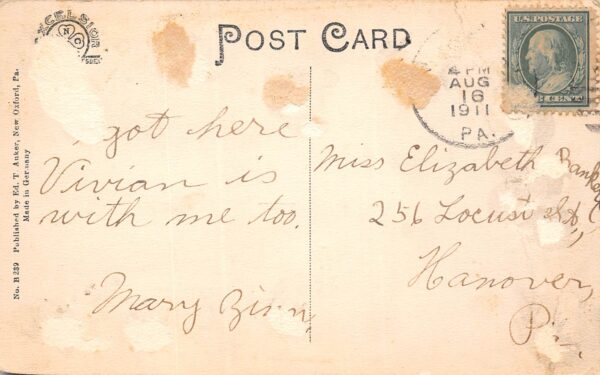 EXCELSIOR
POST CARD
U.S. POSTAGE
CENT
4 PM
AUG
16
1911
PA.
No. B 239 Published by Ed. T. Anker, New Oxford, Pa.
Made in Germany
got here
Vivian is
with me too.
Mary Zinn,
Miss Elizabeth
256 Locust St,
Hanover,
Pa.